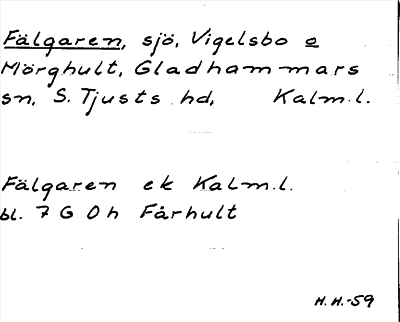 Fälgaren, sjö, Vigelsbo o
Mörghult, Gladhammars
sn, S. Tjusts hd, Kalm.l.
Fälgaren ek Kalm.l.
bl. 7 G 0 h Fårhult
H.H.-59